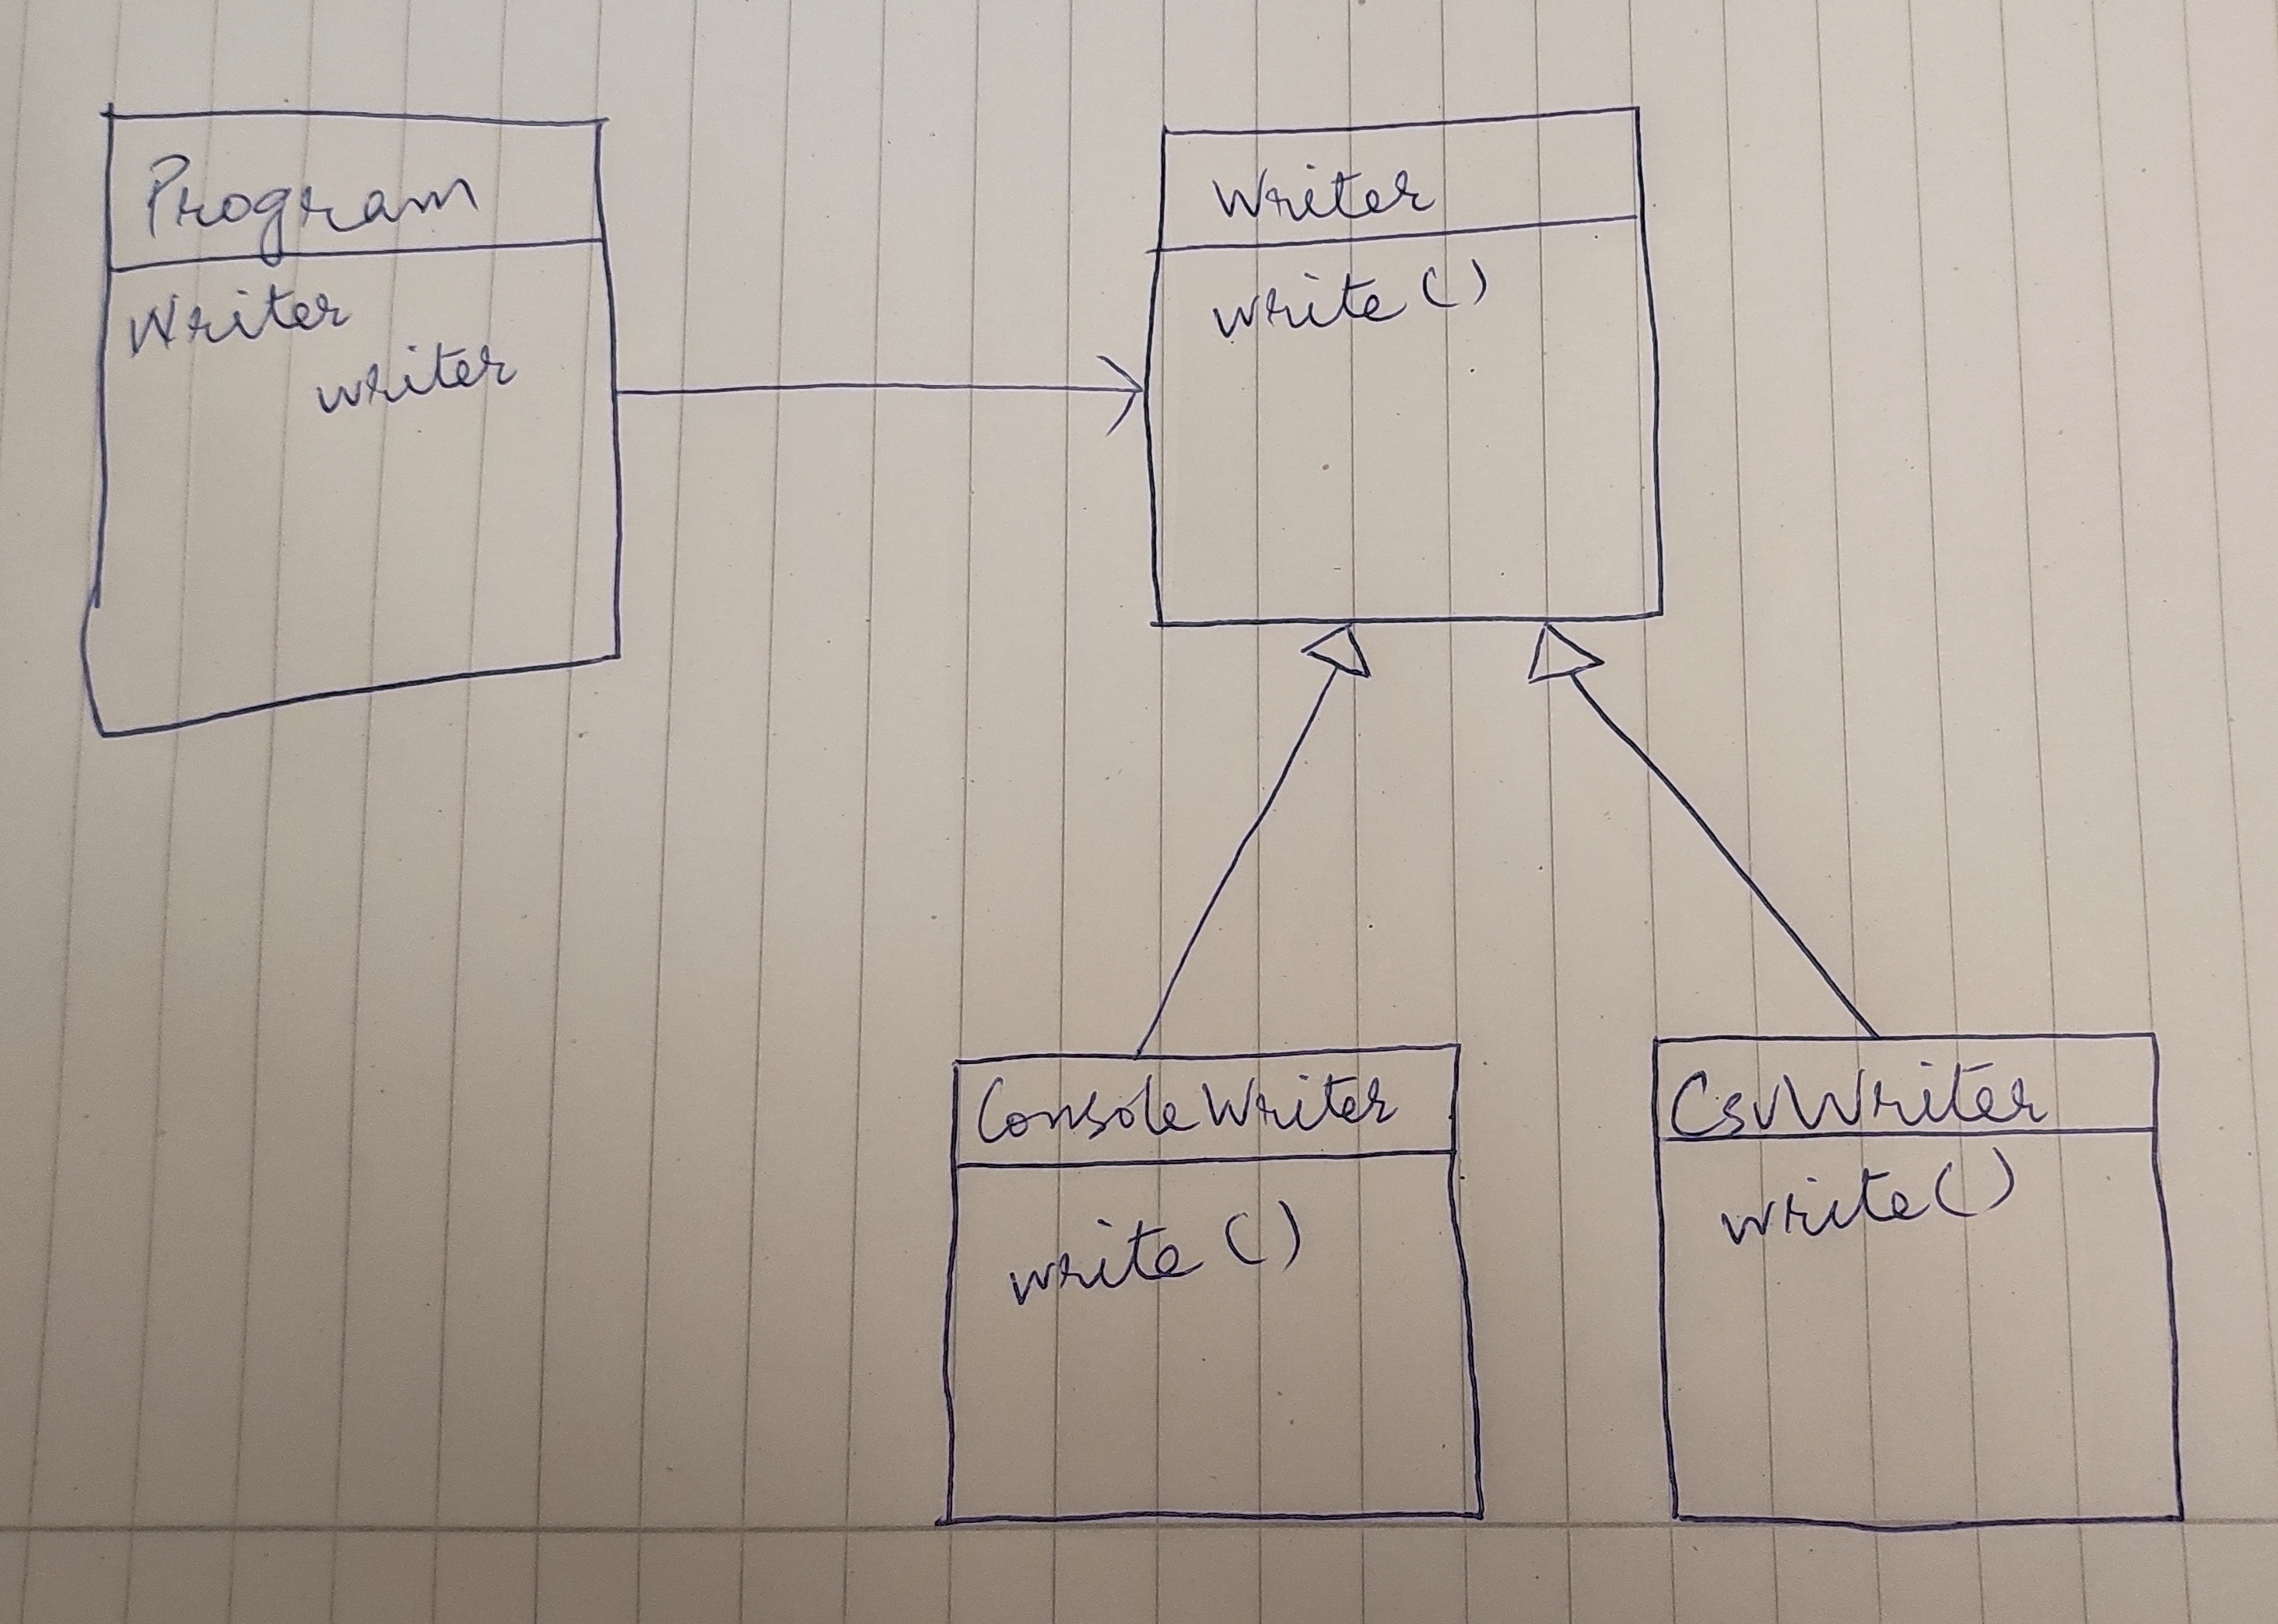 Program
Writer
writer
Writer
write()
ConsoleWriter
write()
CsvWriter
write()